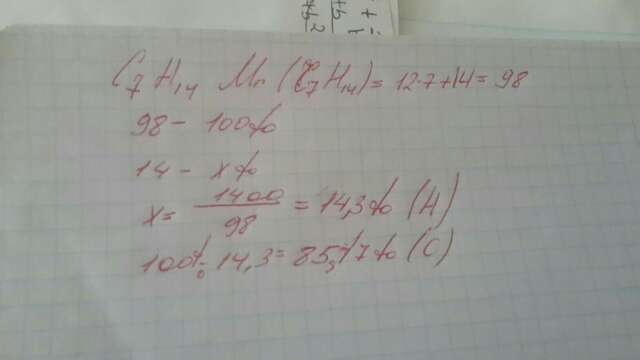 C₇H₁₄ Mr (C₇H₁₄) = 12·7+14 = 98
98 - 100%
14 - x%
x = 1400/98 = 14,3% (H)
100% - 14,3 = 85,7% (C)